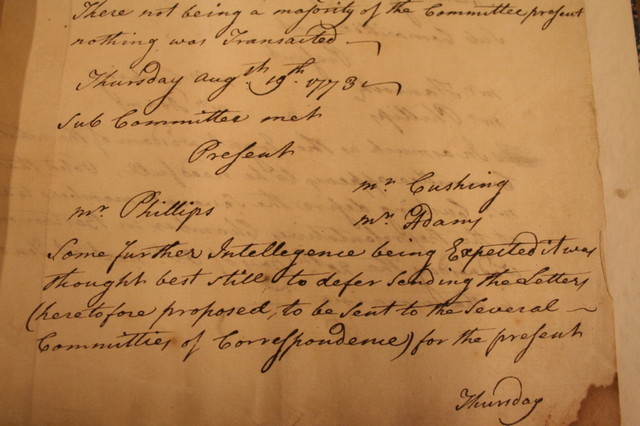 There not being a majority of the Committee present
nothing was Transacted
Thursday Augth. 19th. 1773
Sub Committee met
Present
mr. Cushing
mr. Phillips
mr. Adams
Some further Intellegence being Expected it was
thought best still to defer sending the Letters
(heretofore proposed, to be sent to the Several
Committies of Correspondence) for the present
Thursday